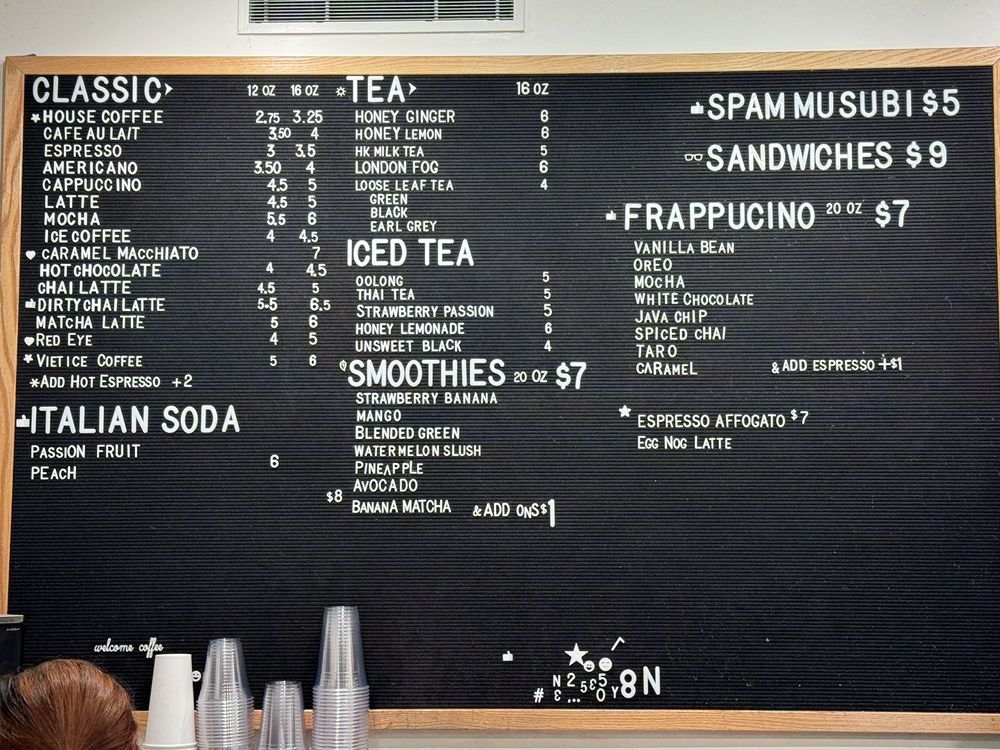 CLASSIC 12 OZ 16 OZ
HOUSE COFFEE 2.75 3.25
CAFE AU LAIT 3.50 4
ESPRESSO 3 3.5
AMERICANO 3.50 4
CAPPUCCINO 4.5 5
LATTE 4.5 5
MOCHA 5.5 6
ICE COFFEE 4 4.5
CARAMEL MACCHIATO 7
HOT CHOCOLATE 4 4.5
CHAI LATTE 4.5 5
DIRTY CHAI LATTE 5.5 6.5
MATCHA LATTE 5 6
RED EYE 4 5
VIETICE COFFEE 5 6
*ADD HOT ESPRESSO +2
ITALIAN SODA
PASSION FRUIT
6
PEACH
TEA 16 OZ
HONEY GINGER 6
HONEY LEMON 6
HK MILK TEA 5
LONDON FOG 6
LOOSE LEAF TEA 4
GREEN
BLACK
EARL GREY
ICED TEA
OOLONG 5
THAI TEA 5
STRAWBERRY PASSION 5
HONEY LEMONADE 6
UNSWEET BLACK 4
SMOOTHIES 20 OZ $7
STRAWBERRY BANANA
MANGO
BLENDED GREEN
WATERMELON SLUSH
PINEAPPLE
AVOCADO
$8 BANANA MATCHA & ADD ONS $1
SPAM MUSUBI $5
SANDWICHES $9
FRAPPUCINO 20 OZ $7
VANILLA BEAN
OREO
MOCHA
WHITE CHOCOLATE
JAVA CHIP
SPICED CHAI
TARO
CARAMEL & ADD ESPRESSO +$1
ESPRESSO AFFOGATO $7
EGG NOG LATTE
welcome coffee